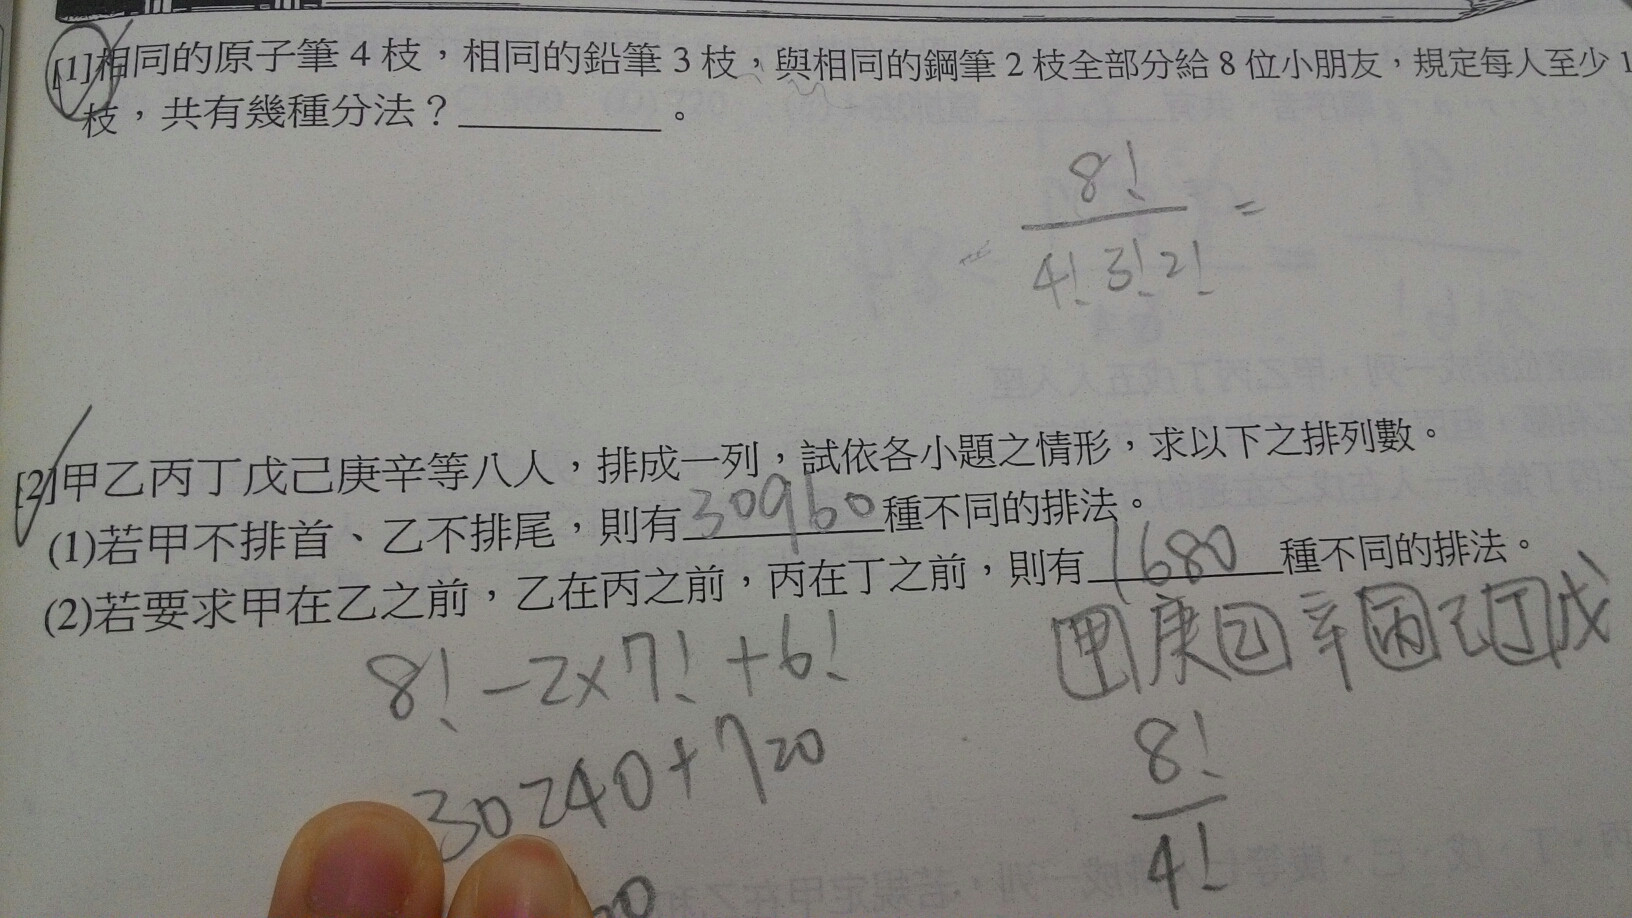 [1]相同的原子筆4枝,相同的鉛筆3枝,與相同的鋼筆2枝全部分給8位小朋友,規定每人至少1
枝,共有幾種分法?
8!
4!3!2!
=
[2]甲乙丙丁戊己庚辛等八人,排成一列,試依各小題之情形,求以下之排列數。
(1)若甲不排首、乙不排尾,則有30960種不同的排法。
(2)若要求甲在乙之前,乙在丙之前,丙在丁之前,則有1680種不同的排法。
8!-2×7!+6!
30240+720
甲庚乙辛丙己丁戊
8!
4!